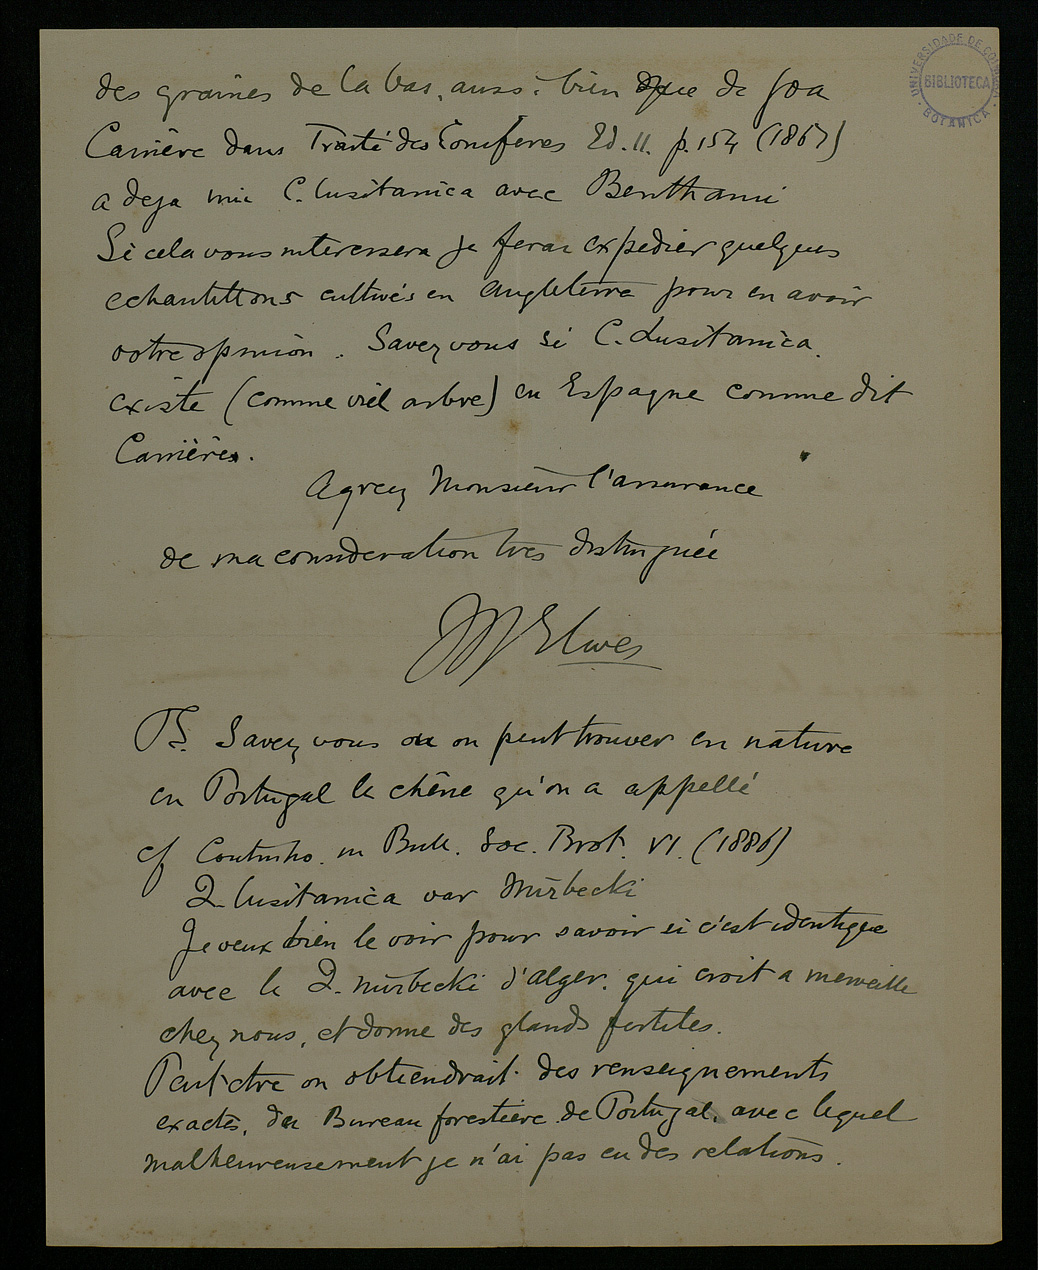 UNIVERSIDADE DE COIMBRA
BIBLIOTECA
BOTANICA
des graines de la bas, aussi bien que de Goa
Carrière dans Traité des Conifères Ed. II. p. 154 (1867)
a deja C. lusitanica avec Benthami
Si cela vous interessera je ferai expedier quelques
echantillons cultivés en Angleterre pour en avoir
votre opinion. Savez vous si C. Lusitanica
existe (comme viel arbre) en Espagne comme dit
Carrière.
Agreez Monsieur l'assurance
de ma consideration tres distinguée
HJ Elwes
PS. Savez vous ou on peut trouver en nature
en Portugal le chêne qu'on a appellé
cf Coutinho. in Bull. Soc. Brot. VI. (1886)
Q. lusitanica var Mirbecki
Je veux bien le voir pour savoir si c'est identique
avec le Q. mirbecki d'Alger. qui croit a merveille
chez nous, et donne des glands fertiles.
Peut etre on obtiendrait des renseignements
exactes, du Bureau forestiere de Portugal, avec lequel
malheureusement je n'ai pas eu des relations.